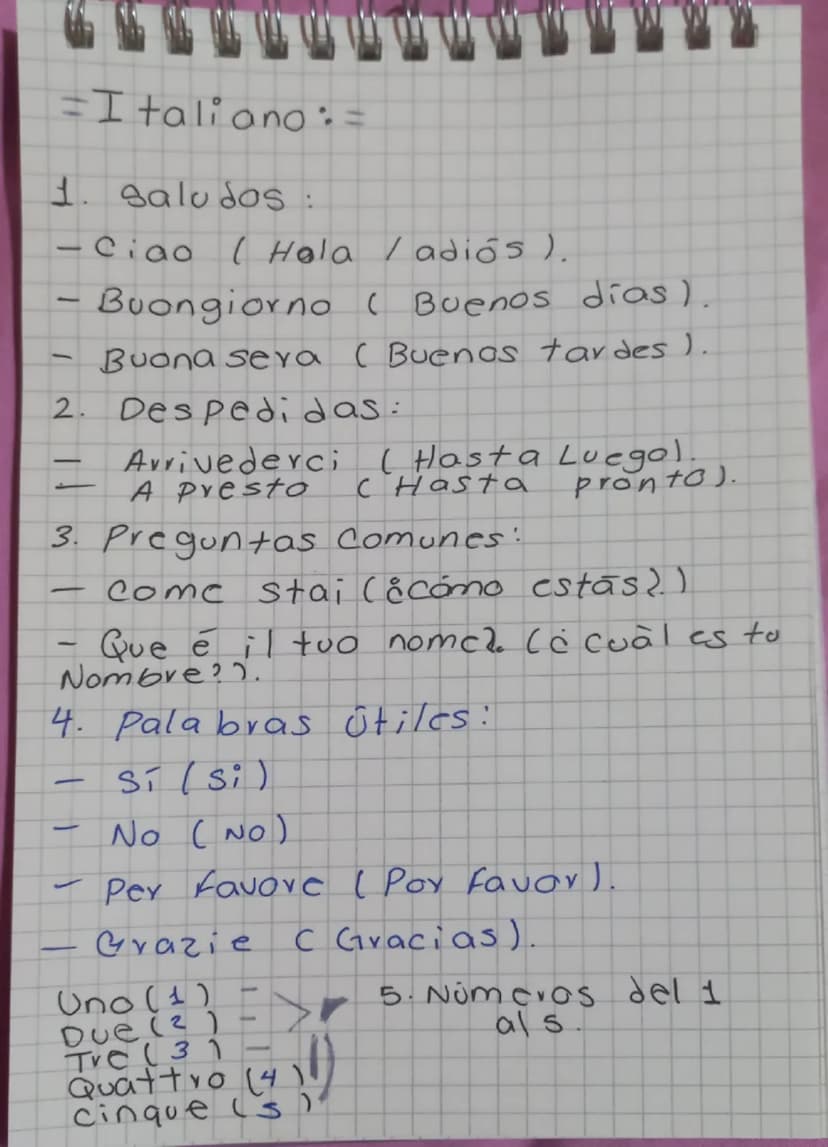 =Italiano:=
1. Saludos:
- Ciao (Hola / adiós).
- Buongiorno (Buenos días).
- Buona sera (Buenas tardes).
2. Despedidas:
- Arrivederci (Hasta Luego).
- A presto (Hasta pronto).
3. Preguntas comunes:
- Come stai (¿cómo estás?)
- Que é il tuo nome?. (¿cuál es tu
Nombre?).
4. Palabras útiles:
- Sí (Si)
- No (No)
- Per favore (Por Favor).
- Grazie (Gracias).
Uno (1) -
Due (2) -
Tre (3) -
Quattro (4)
Cinque (5)
5. Números del 1
al 5.